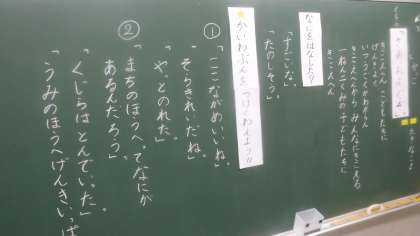 きこえへん こどもたちに
きこえへんから みんなにきこえる
一ねん二くみの子どもたちに
きこえへん
なにをはなしたの?
「すごいな。」
「たのしそう。」
★かいわぶんをつけくわえよう!!
①「ここながめいいね」
「そらきれいだね」
「や、とのれた」
②「まちのほうへってなにが
あるんだろう。」
「くじらはとんでいった」
「うみのほうへげんきいっぱ